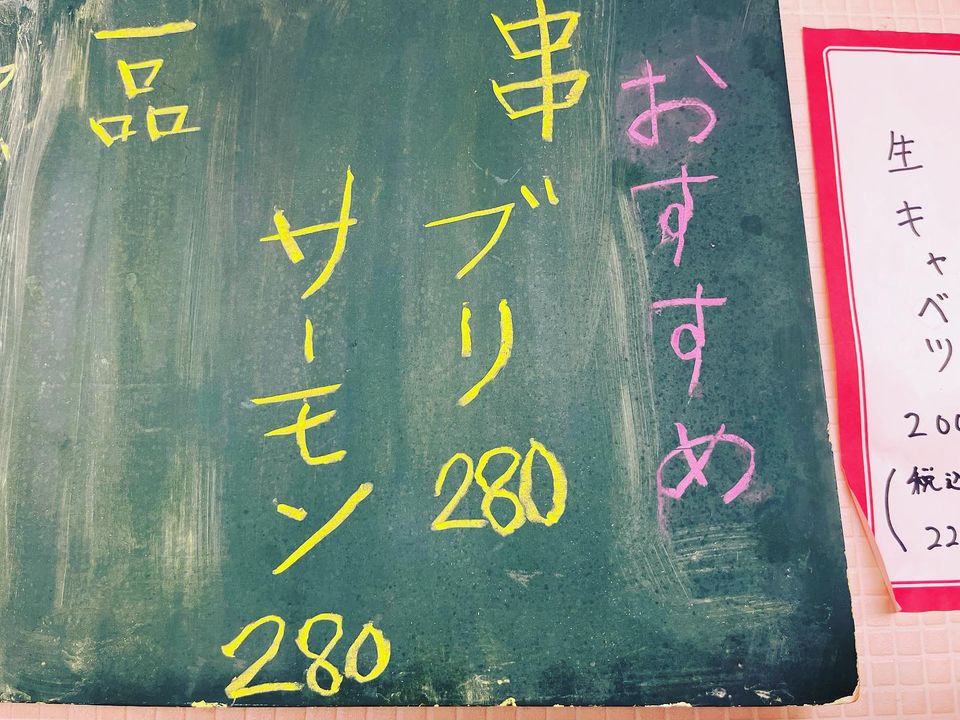 生キャベツ 200
(税込 22
おすすめ
串 ブリ 280
サーモン 280
一品